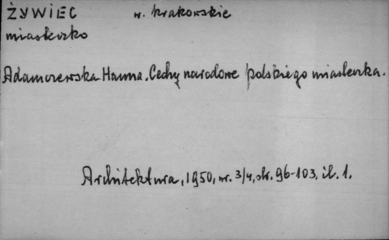 ŻYWIEC w. krakowskie
miasteczko
Adamczewska Hanna. Cechy narodowe polskiego miasteczka.
Architektura, 1950, nr. 3/4, str. 96-103, il. 1.